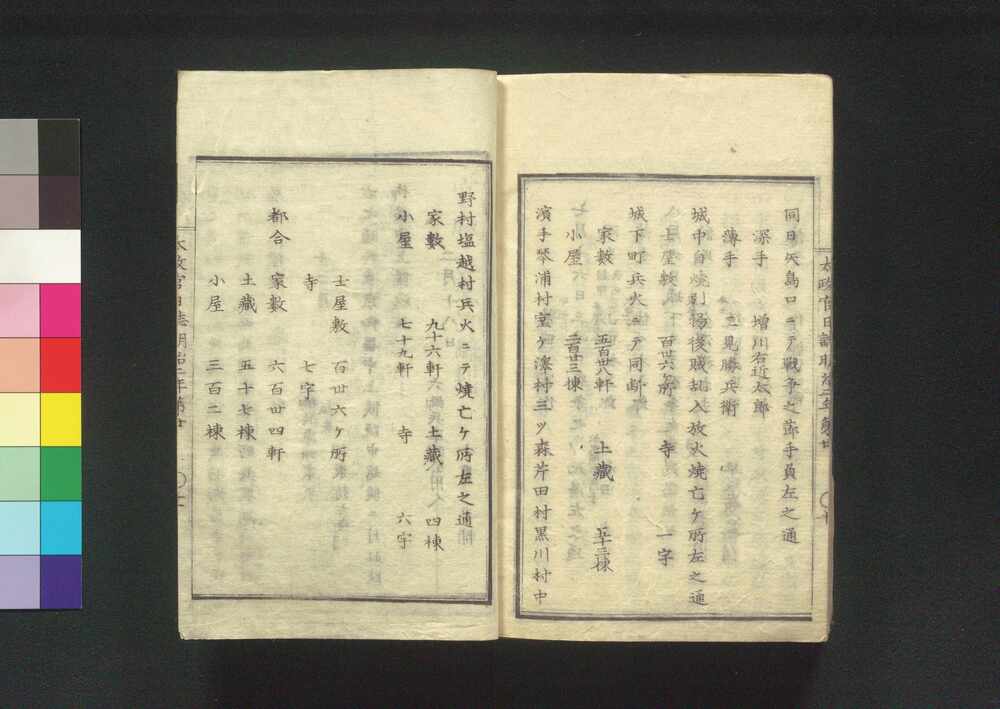 同日矢島口ニテ戦争之節手負左之通
深手　増川右近太郎
薄手　二見勝兵衛
城中自焼引揚後賊押入放火焼亡ケ所左之通
士屋敷　百廿六ケ所　寺　一字
城下町兵火ニテ同断
家数　五百廿八軒　土蔵　五十三棟
小屋　二百廿三棟
濱手琴浦村室ケ澤村三ツ森芹田村黒川村中
野村塩越村兵火ニテ焼亡ケ所左之通
家数　九十六軒　土蔵　四棟
小屋　七十九軒　寺　六字
士屋敷　百廿六ケ所
寺　七字
都合　家数　六百廿四軒
土蔵　五十七棟
小屋　三百二棟